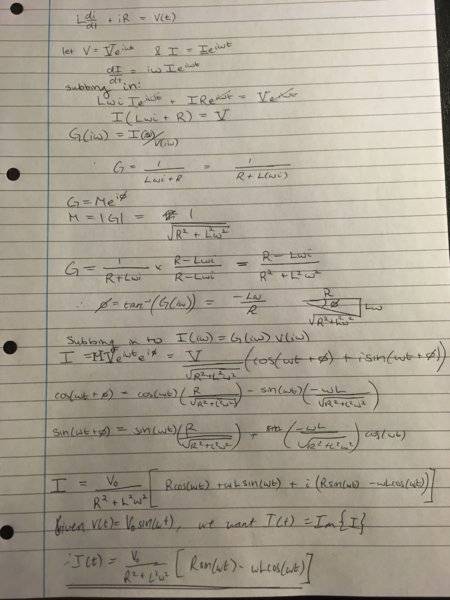 L di/dt + iR = V(t)
let V = Ve^iωt & I = Ie^iωt
dI/dt = iω I e^iωt
subbing in:
Lωi I e^iωt + I R e^iωt = V e^iωt
I (Lωi + R) = V
G(iω) = I(iω)/V(iω)
∴ G = 1/(Lωi + R) = 1/(R + L(ωi))
G = Me^iø
M = |G| = 1/√(R² + L²ω²)
G = 1/(R+Lωi) × (R - Lωi)/(R - Lωi) = (R - Lωi)/(R² + L²ω²)
∴ ø = tan⁻¹(G(iω)) = -Lω/R R ø Lω √(R²+L²ω²)
Subbing in to I(iω) = G(iω) V(iω)
I = MVe^iωt e^iø = V/√(R²+L²ω²) (cos(ωt + ø) + i sin(ωt + ø))
cos(ωt + ø) = cos(ωt) (R/√(R²+L²ω²)) - sin(ωt) (-ωL/√(R²+L²ω²))
sin(ωt + ø) = sin(ωt) (R/√(R²+L²ω²)) + (-ωL/√(R²+L²ω²)) cos(ωt)
I = V₀/(R² + L²ω²) [ Rcos(ωt) + ωL sin(ωt) + i (Rsin(ωt) - ωLcos(ωt)) ]
Given V(t) = V₀ sin(ωt), we want I(t) = Im{I}
∴ I(t) = V₀/(R² + L²ω²) [ Rsin(ωt) - ωLcos(ωt) ]